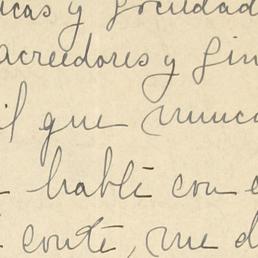 icas y sociedad
acreedores y sin
il que nunca
hablé con e
conté, me d